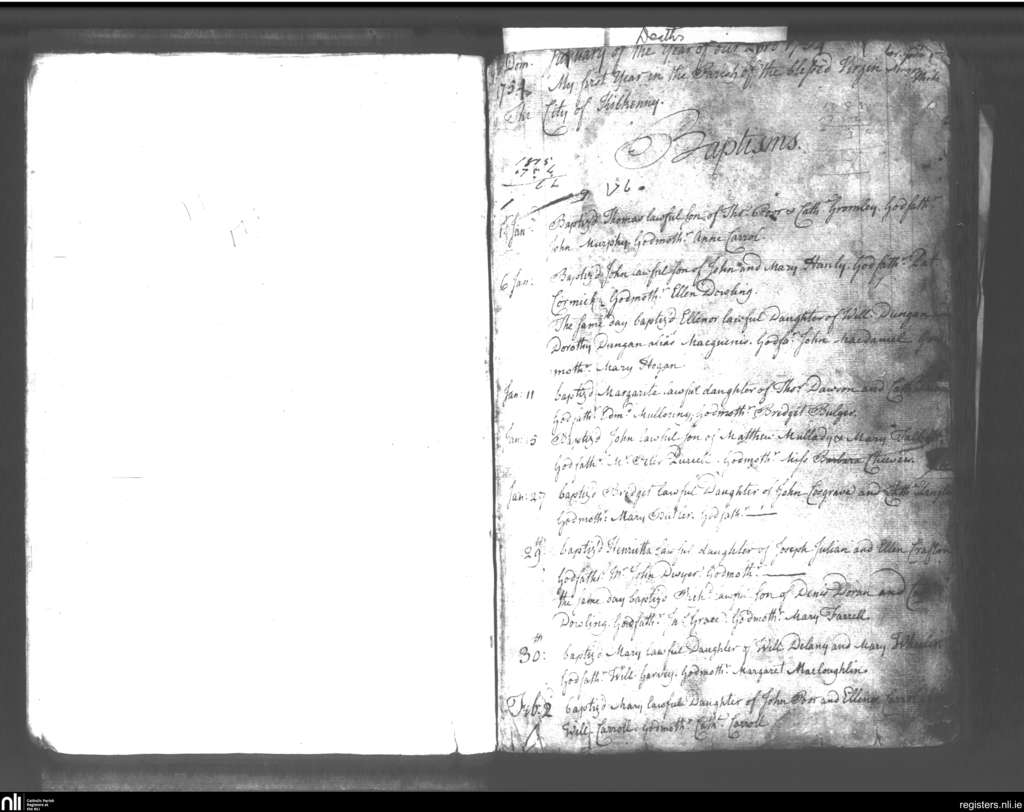 Deaths
Dom. January of the Year of our 1754
1754 My first Year in the Parish of the blessed Virgin
The City of Kilkenny.
Baptisms.
1875
1754
1st Jan: Baptiz'd Thomas lawful son of Tho: Poor & Cath: Gromley. Godfath:
John Murphy. Godmoth: Anne Carrol
6 Jan: Baptiz'd John lawful son of John and Mary Hanly. Godfath: Pat
Cormick. Godmoth: Ellen Dowling.
The same day baptiz'd Ellenor lawful Daughter of Will: Dungan
Dorothy Dungan alias Macguenis. Godfa: John Macdaniel. God
moth: Mary Hogan
Jan: 11 baptiz'd Margarite lawful daughter of Tho: Dawson and
Godfath: Edm: Mullowny, Godmoth: Bridget Bulger.
Baptiz'd John lawful son of Matthew Mullady & Mary
Godfath: Mr. Purcell. Godmoth: Miss Barbara Cheevers.
Jan: 27 baptiz'd Bridget lawful Daughter of John Cosgrave and Cath:
Godmoth: Mary Butler. Godfath:
29th baptiz'd Henrietta lawful daughter of Joseph Julian and Ellen Crafton
Godfath: Mr. John Dwyer. Godmoth:
the same day baptiz'd Rich: lawful son of Denis Doran and
Dowling. Godfath: Ja: Grace. Godmoth: Mary Farrell
30th: baptiz'd Mary lawful Daughter of Will: Delany and Mary Wheelan
Godfath: Will: Harvey. Godmoth: Margaret Macloughlin.
Feb: 2 baptiz'd Mary lawful Daughter of John Poor and Ellenor Carroll
Will: Carroll. Godmoth: Cath: Carroll
nli
Catholic Parish
Registers at
the NLI
registers.nli.ie